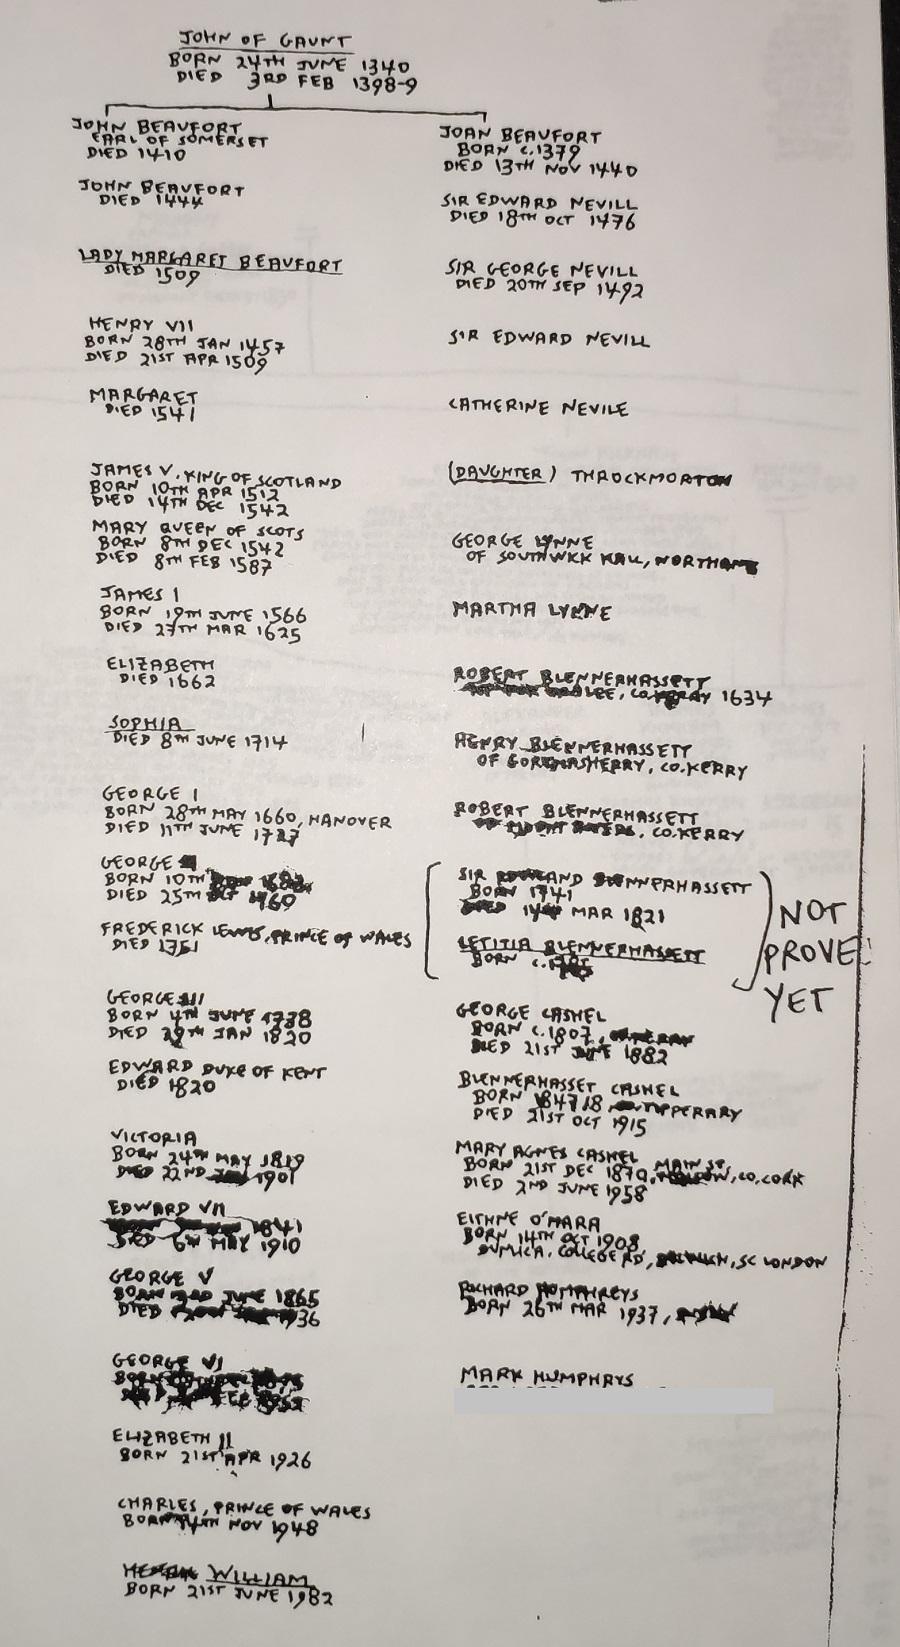 JOHN OF GAUNT
BORN 24TH JUNE 1340
DIED 3RD FEB 1398-9
JOHN BEAUFORT
EARL OF SOMERSET
DIED 1410
JOHN BEAUFORT
DIED 1444
LADY MARGARET BEAUFORT
DIED 1509
HENRY VII
BORN 28TH JAN 1457
DIED 21ST APR 1509
MARGARET
DIED 1541
JAMES V, KING OF SCOTLAND
BORN 10TH APR 1512
DIED 14TH DEC 1542
MARY QUEEN OF SCOTS
BORN 8TH DEC 1542
DIED 8TH FEB 1587
JAMES I
BORN 19TH JUNE 1566
DIED 27TH MAR 1625
ELIZABETH
DIED 1662
SOPHIA
DIED 8TH JUNE 1714
GEORGE I
BORN 28TH MAY 1660, HANOVER
DIED 11TH JUNE 1727
GEORGE
BORN 10TH
DIED 25TH OCT 1760
FREDERICK LEWIS, PRINCE OF WALES
DIED 1751
GEORGE III
BORN 4TH JUNE 1738
DIED 29TH JAN 1820
EDWARD DUKE OF KENT
DIED 1820
VICTORIA
BORN 24TH MAY 1819
DIED 22ND JAN 1901
EDWARD VII
1841
DIED 6TH MAY 1910
GEORGE V
BORN 3RD JUNE 1865
DIED 1936
GEORGE VI
BORN
ELIZABETH II
BORN 21ST APR 1926
CHARLES, PRINCE OF WALES
BORN 14TH NOV 1948
WILLIAM
BORN 21ST JUNE 1982
JOAN BEAUFORT
BORN C.1379
DIED 13TH NOV 1440
SIR EDWARD NEVILL
DIED 18TH OCT 1476
SIR GEORGE NEVILL
DIED 20TH SEP 1492
SIR EDWARD NEVILL
CATHERINE NEVILE
(DAUGHTER) THROCKMORTON
GEORGE LYNNE
OF SOUTHWICK HALL, NORTHANTS
MARTHA LYNNE
ROBERT BLENNERHASSETT
CO.KERRY 1634
HENRY BLENNERHASSETT
OF CO.KERRY
ROBERT BLENNERHASSETT
CO.KERRY
SIR ROWLAND BLENNERHASSETT
BORN 1741
DIED 14TH MAR 1821
LETITIA BLENNERHASSETT
BORN C.
NOT
PROVE
YET
GEORGE CASHEL
BORN C.1807,
DIED 21ST JUNE 1882
BLENNERHASSET CASHEL
BORN 1847/8 TIPPERARY
DIED 21ST OCT 1915
MARY AGNES CASHEL
BORN 21ST DEC 1870, MAIN ST, CO.CORK
DIED 2ND JUNE 1958
EITHNE O'MARA
BORN 14TH OCT 1908
COLLEGE RD, SE LONDON
RICHARD HUMPHREYS
BORN 26TH MAR 1937,
MARK HUMPHRYS